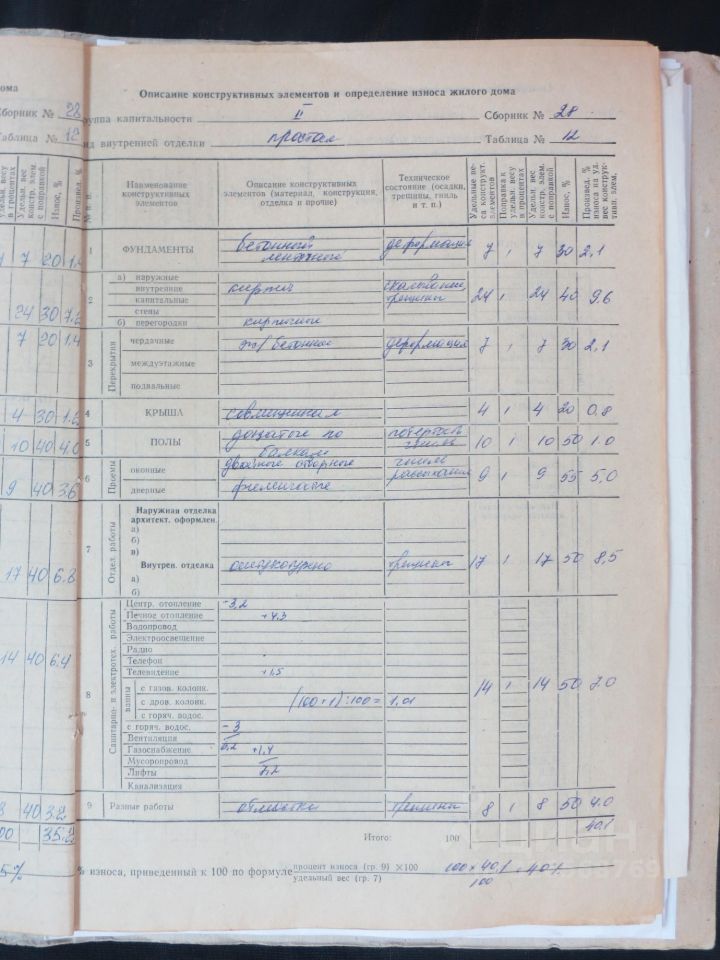 ома
Описание конструктивных элементов и определение износа жилого дома
Сборник № 28
группа капитальности II Сборник № 28
Таблица № 12
вид внутренней отделки простая Таблица № 12
Удельн. вес констр. элем. с поправкой
Износ, %
Произвед. %
№ п. п.
Наименование конструктивных элементов
Описание конструктивных элементов (материал, конструкция, отделка и прочие)
Техническое состояние (осадки, трещины, гниль и т. п.)
Удельные веса конструкт. элементов
Поправка к удельн. весу в процентах
Удельн. вес констр. элем. с поправкой
Износ, %
Произвед. % износа на уд. вес конструктивн. элем.
7 20 1.4
1 ФУНДАМЕНТЫ бетонный ленточные деформация 7 1 7 30 2,1
24 30 7.2
2 а) наружные
внутренние кирпич скалывание, трещины 24 1 24 40 9.6
капитальные
стены
б) перегородки кирпичные
7 20 1.4
3 Перекрытия
чердачные ж/бетонное деформация 7 1 7 30 2,1
междуэтажные
подвальные
4 30 1.6
4 КРЫША совмещенная 4 1 4 20 0,8
10 40 4.0
5 ПОЛЫ дощатые по балкам потертость 10 1 10 50 1.0
9 40 3.6
6 Проемы
оконные двойные створные гниль 9 1 9 55 5,0
дверные филенчатые рассыхание
7 Отдел. работы
Наружная отделка архитект. оформлен.
а)
б)
в)
17 40 6.8
Внутрен. отделка оштукатурено трещины 17 1 17 50 8,5
а)
б)
8 Санитарно- и электротех. работы
Центр. отопление -3,2
Печное отопление +4,3
Водопровод
Электроосвещение
Радио
Телефон
Телевидение +1,5
14 40 6.4
14 1 14 50 7.0
ванны
с газов. колонк.
с дров. колонк. (100+1):100= 1,01
с горяч. водос.
с горяч. водос. -3
Вентиляция
Газоснабжение 6,2 +1,4
Мусоропровод
Лифты 7,2
Канализация
8 40 3.2
9 Разные работы отмостка трещины 8 1 8 50 4.0
35.2
40.1
Итого: 100
5%
% износа, приведенный к 100 по формуле процент износа (гр. 9) ×100
удельный вес (гр. 7)
100 × 40,1
100
= 40%